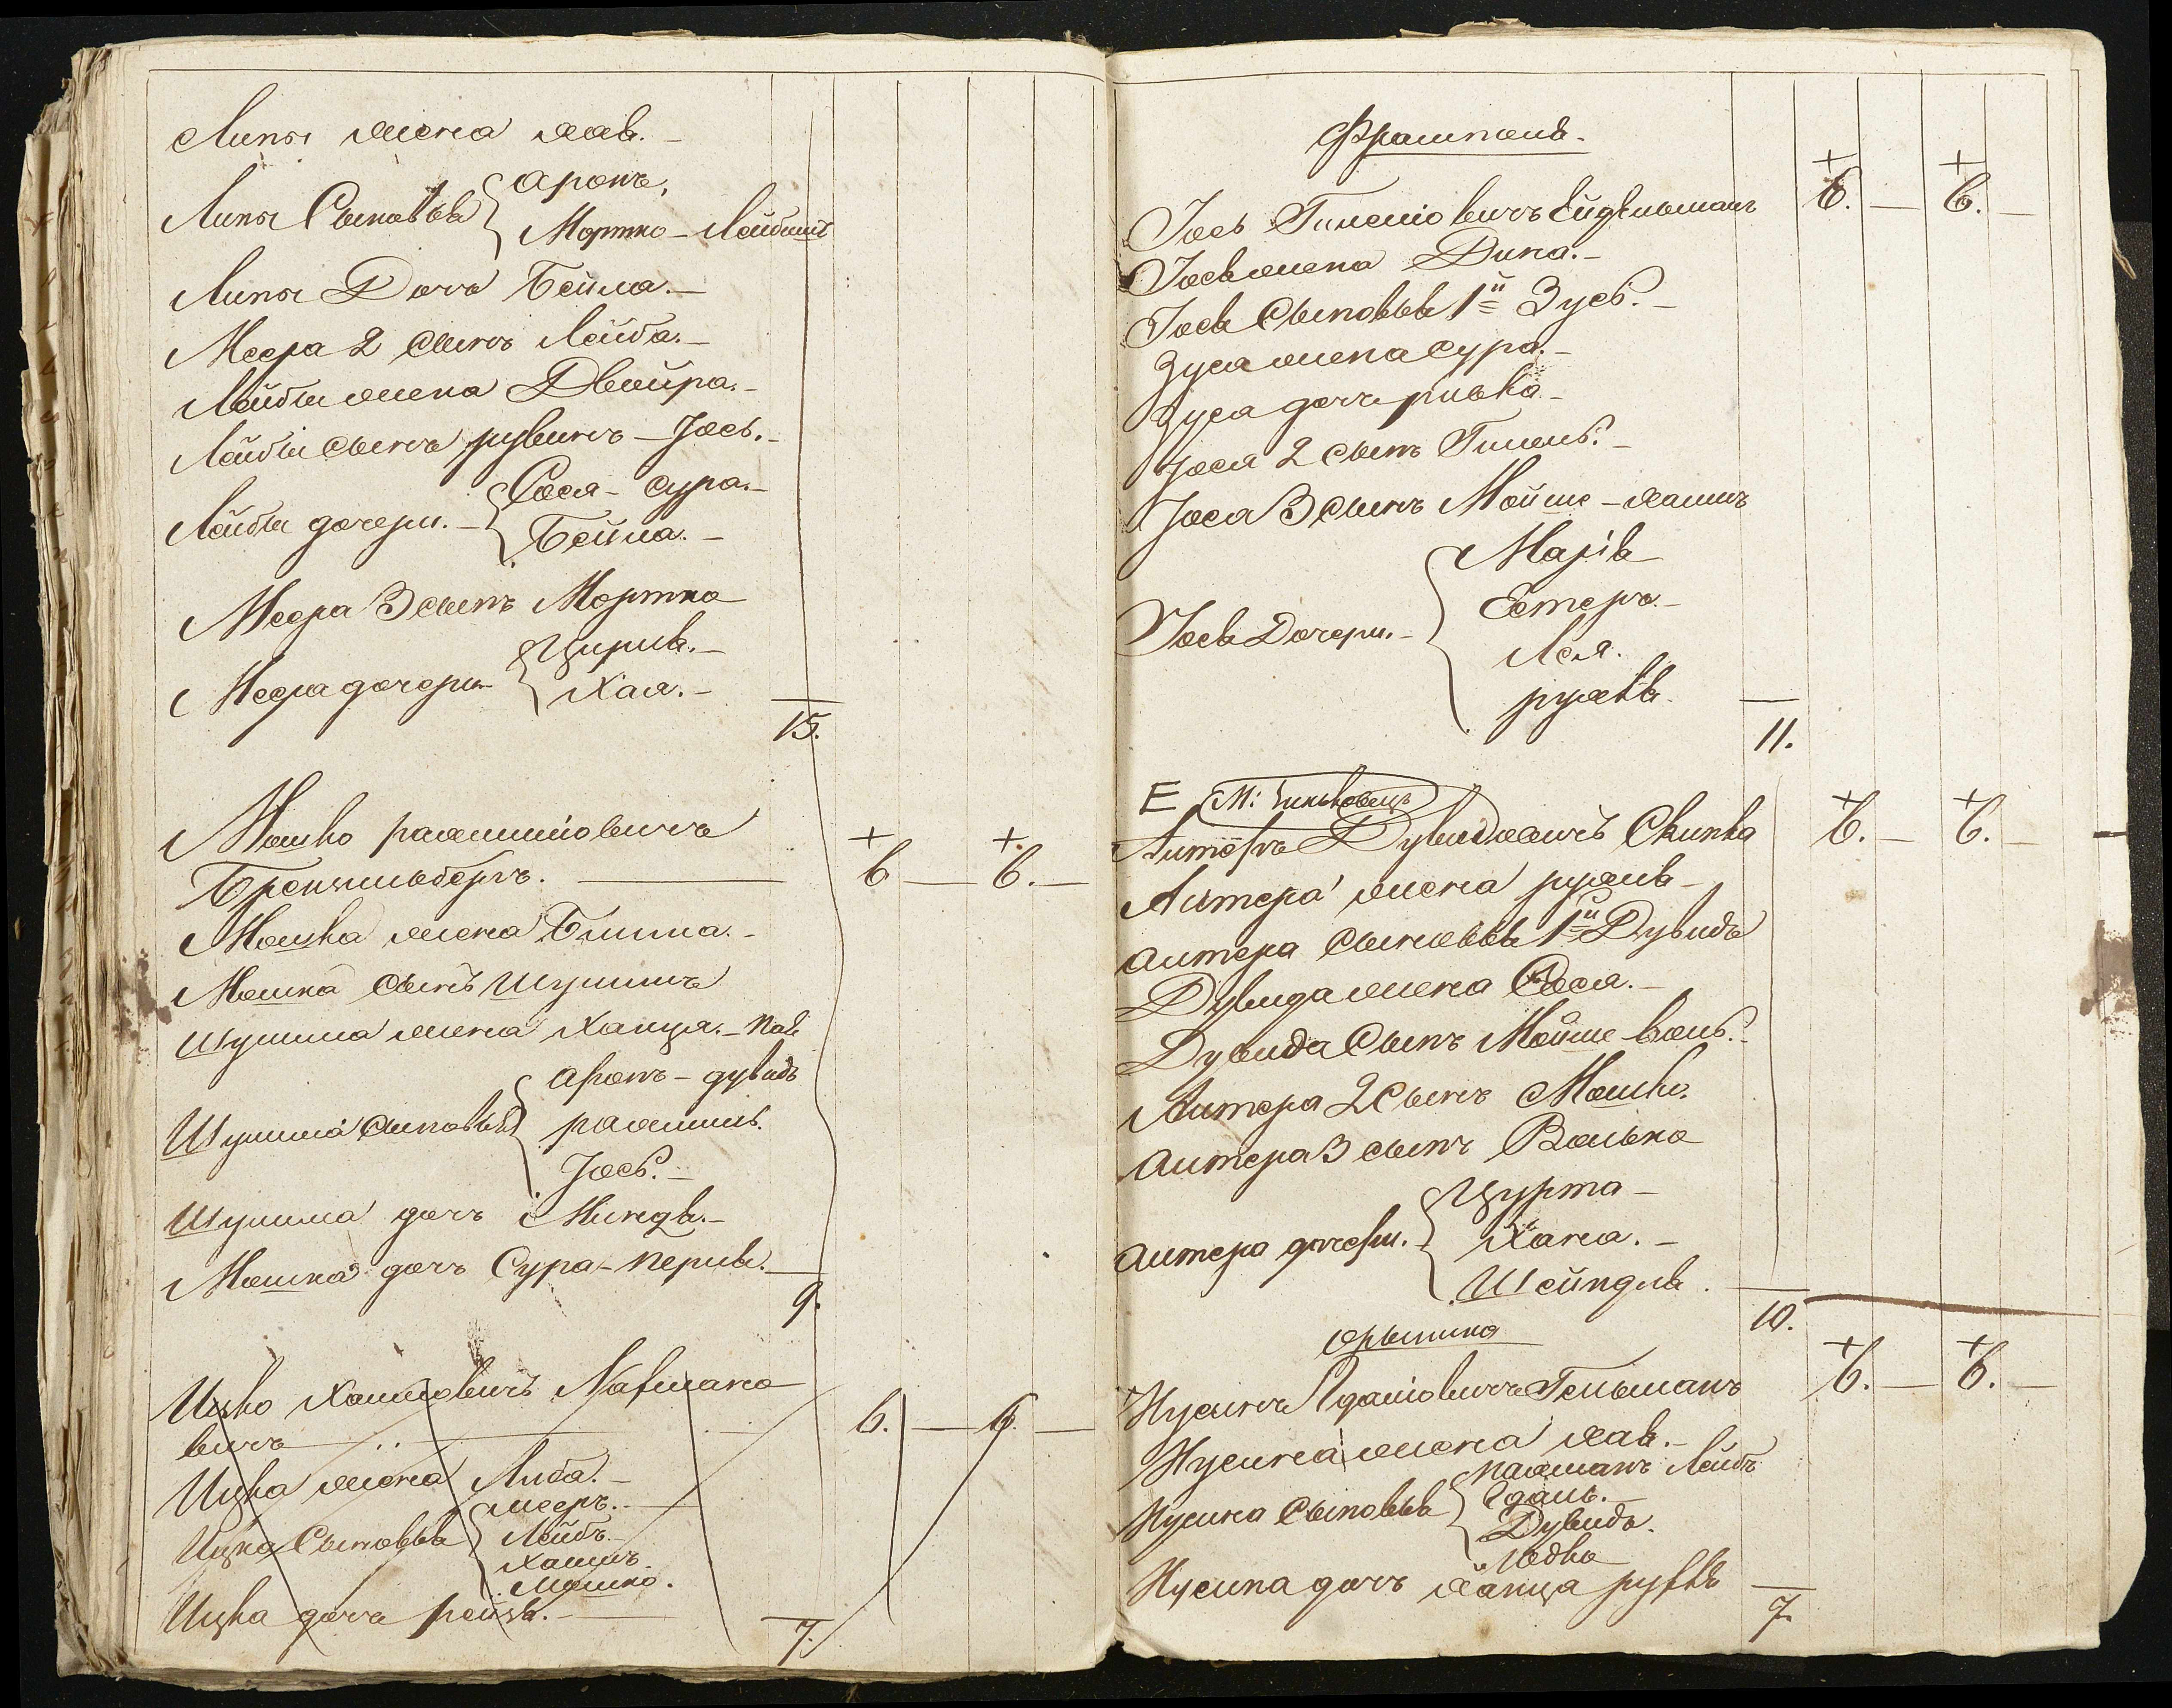 Липы жена хая. –
Липы Сыновья { Аронъ,
Мортко – Лейбишъ
Липы Дочь Бейла. –
Меера 2 сынъ Лейба. –
Лейбы жена Двойра. –
Лейбы сынъ рувинъ – Іось. –
Лейбы дочери. – { Сося – Сура. –
Бейла. –
Меера 3 сынъ Мортко
Меера дочери { Цирля. –
Хая. –
15.
Мошко рахмиловичъ
Брензильберъ. 6 – 6. –
Мошка жена Бима. –
Мошка сынъ Шулимъ
Шулима жена Ханца. –
Шулима сыновья { Аронъ – дувидъ
рахмиль.
Іось. –
Шулима дочь Миндля. –
Мошка дочь Сура – перля. –
9.
Ицко Хаимовичъ
вичъ 6. – 6. –
Ицка жена Либа. –
Ицка Сыновья { мееръ. –
Лейбъ. –
Хаимъ.
Мошко.
Ицка дочь рейзя. –
7.
Іось Гилелiовичъ Ейдельманъ 6. – 6. –
Іося жена Дина. –
Іося Сыновья 1й Зусь. –
Зуса жена Сура. –
Зуса дочь ривка –
Іося 2 сынъ Гилель. –
Іося 3 сынъ Мойше – хаимъ
Іося Дочери. – { Марiя
Естеръ. –
Лея.
рухля.
11.
Е
Антеръ Дувидовичъ Скипка 6. – 6. –
Антера жена рухля –
Антера Сыновья 1й Дувидъ
Дувида жена Сося. –
Дувида Сынъ Мойше – воль. –
Антера 2 Сынъ Мошко.
Антера 3 сынъ Волько
Антера дочери. { Цурта –
Хана. –
Шейндля.
10.
Нусинъ Гдалiовичъ Гельманъ 6. – 6. –
Нусина жена хая. –
Нусина Сыновья { нахманъ Лейбъ
Гдаль. –
Дувидъ.
Іодко
Нусина дочь ханца руфля
7.